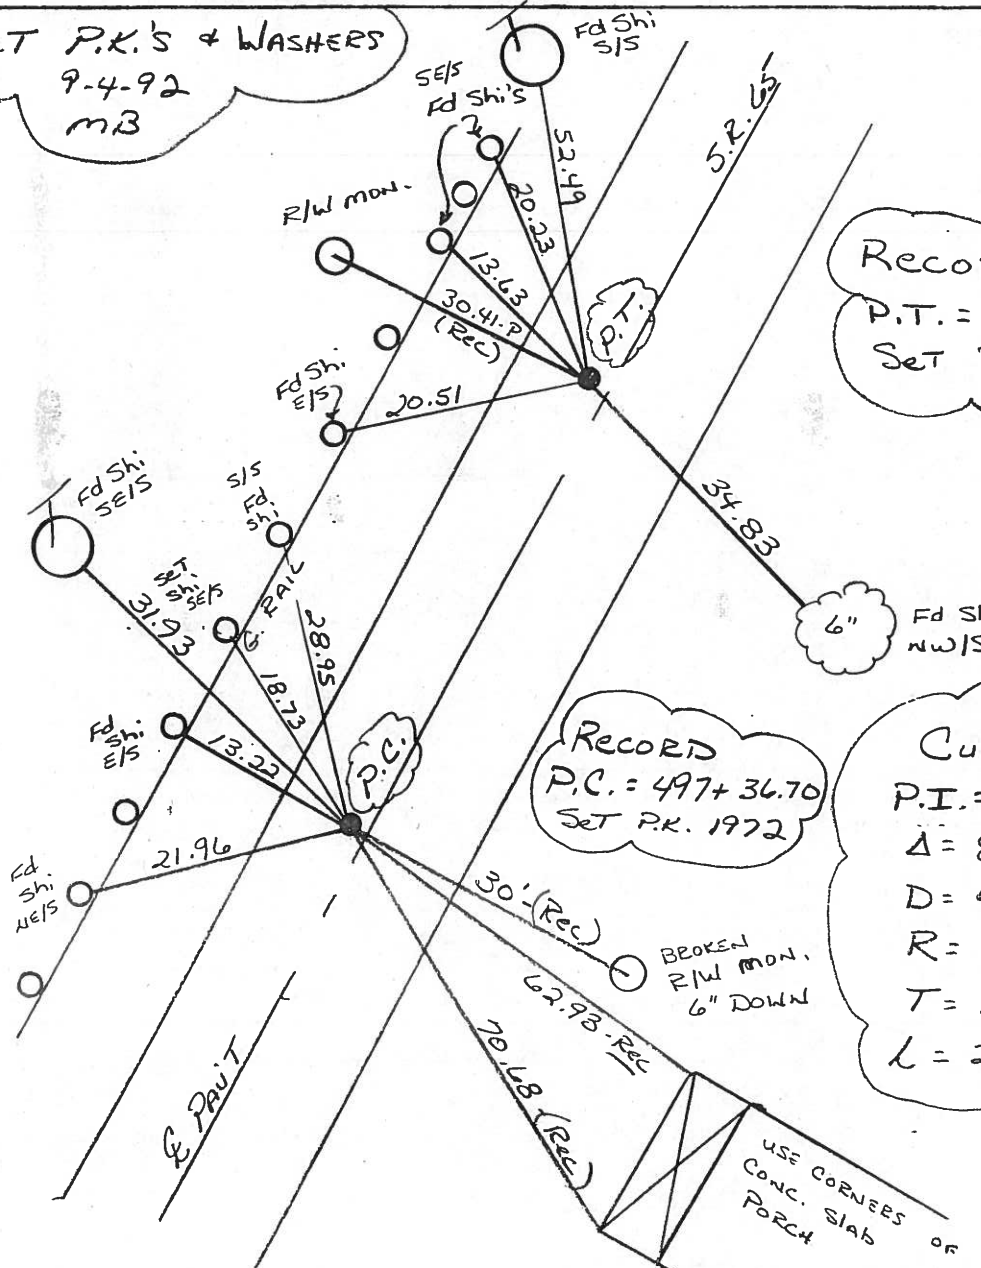 P.K.'S & WASHERS
9-4-92
MB
Fd Shi
S/S
SE/S
Fd Shi's
52.49
20.23
S.R. 65
R/W MON.
13.63
30.41-P
(Rec)
P.T.
Reco
P.T. =
SeT
Fd Shi
E/S
20.51
34.83
6"
Fd
NW/S
Fd Shi
SE/S
S/S
Fd.
Shi
SeT
Shi
SE/S
G. RAIL
31.93
28.95
18.73
Fd
Shi
E/S
13.22
P.C.
RECORD
P.C. = 497+36.70
SeT P.K. 1972
Cu
P.I. =
Δ = 8
D = 4
R =
T =
L = 2
Fd
Shi
NE/S
21.96
30'-(Rec)
BROKEN
R/W MON.
6" DOWN
62.93-Rec
70.68-(Rec)
℄ PAV'T
USE CORNERS OF
CONC. SlAb
PORCH